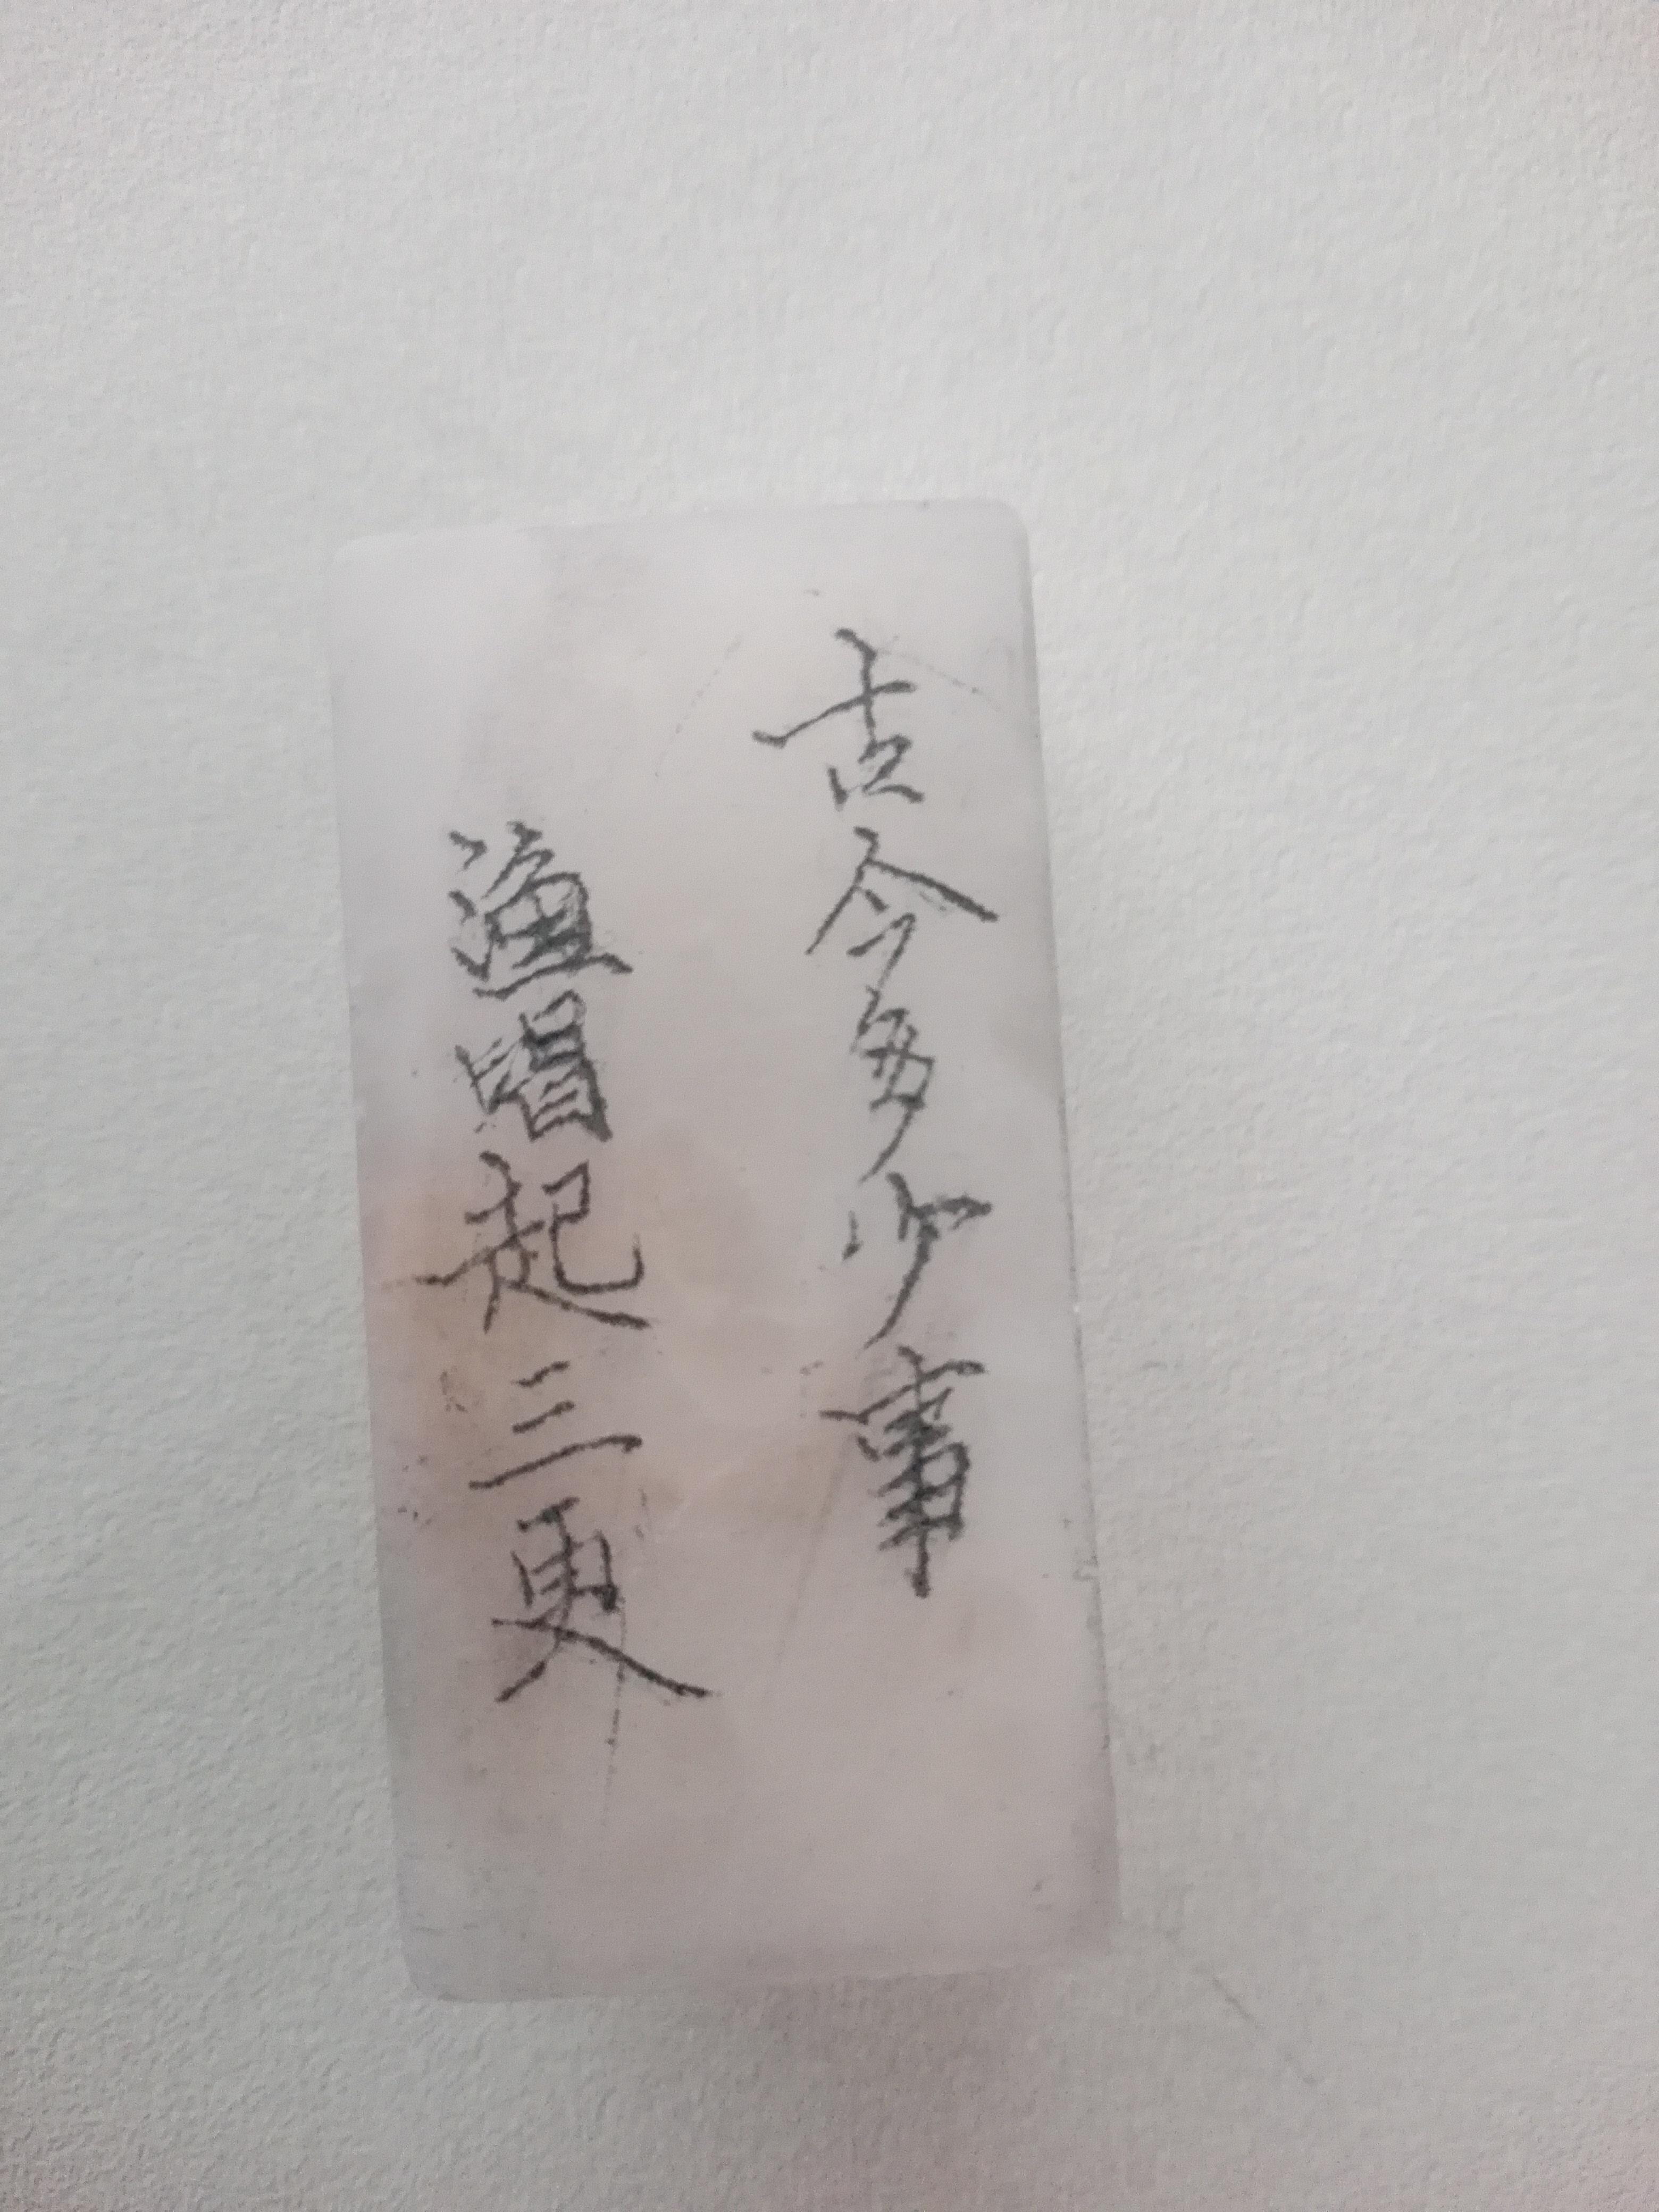 古今多少事
渔唱起三更